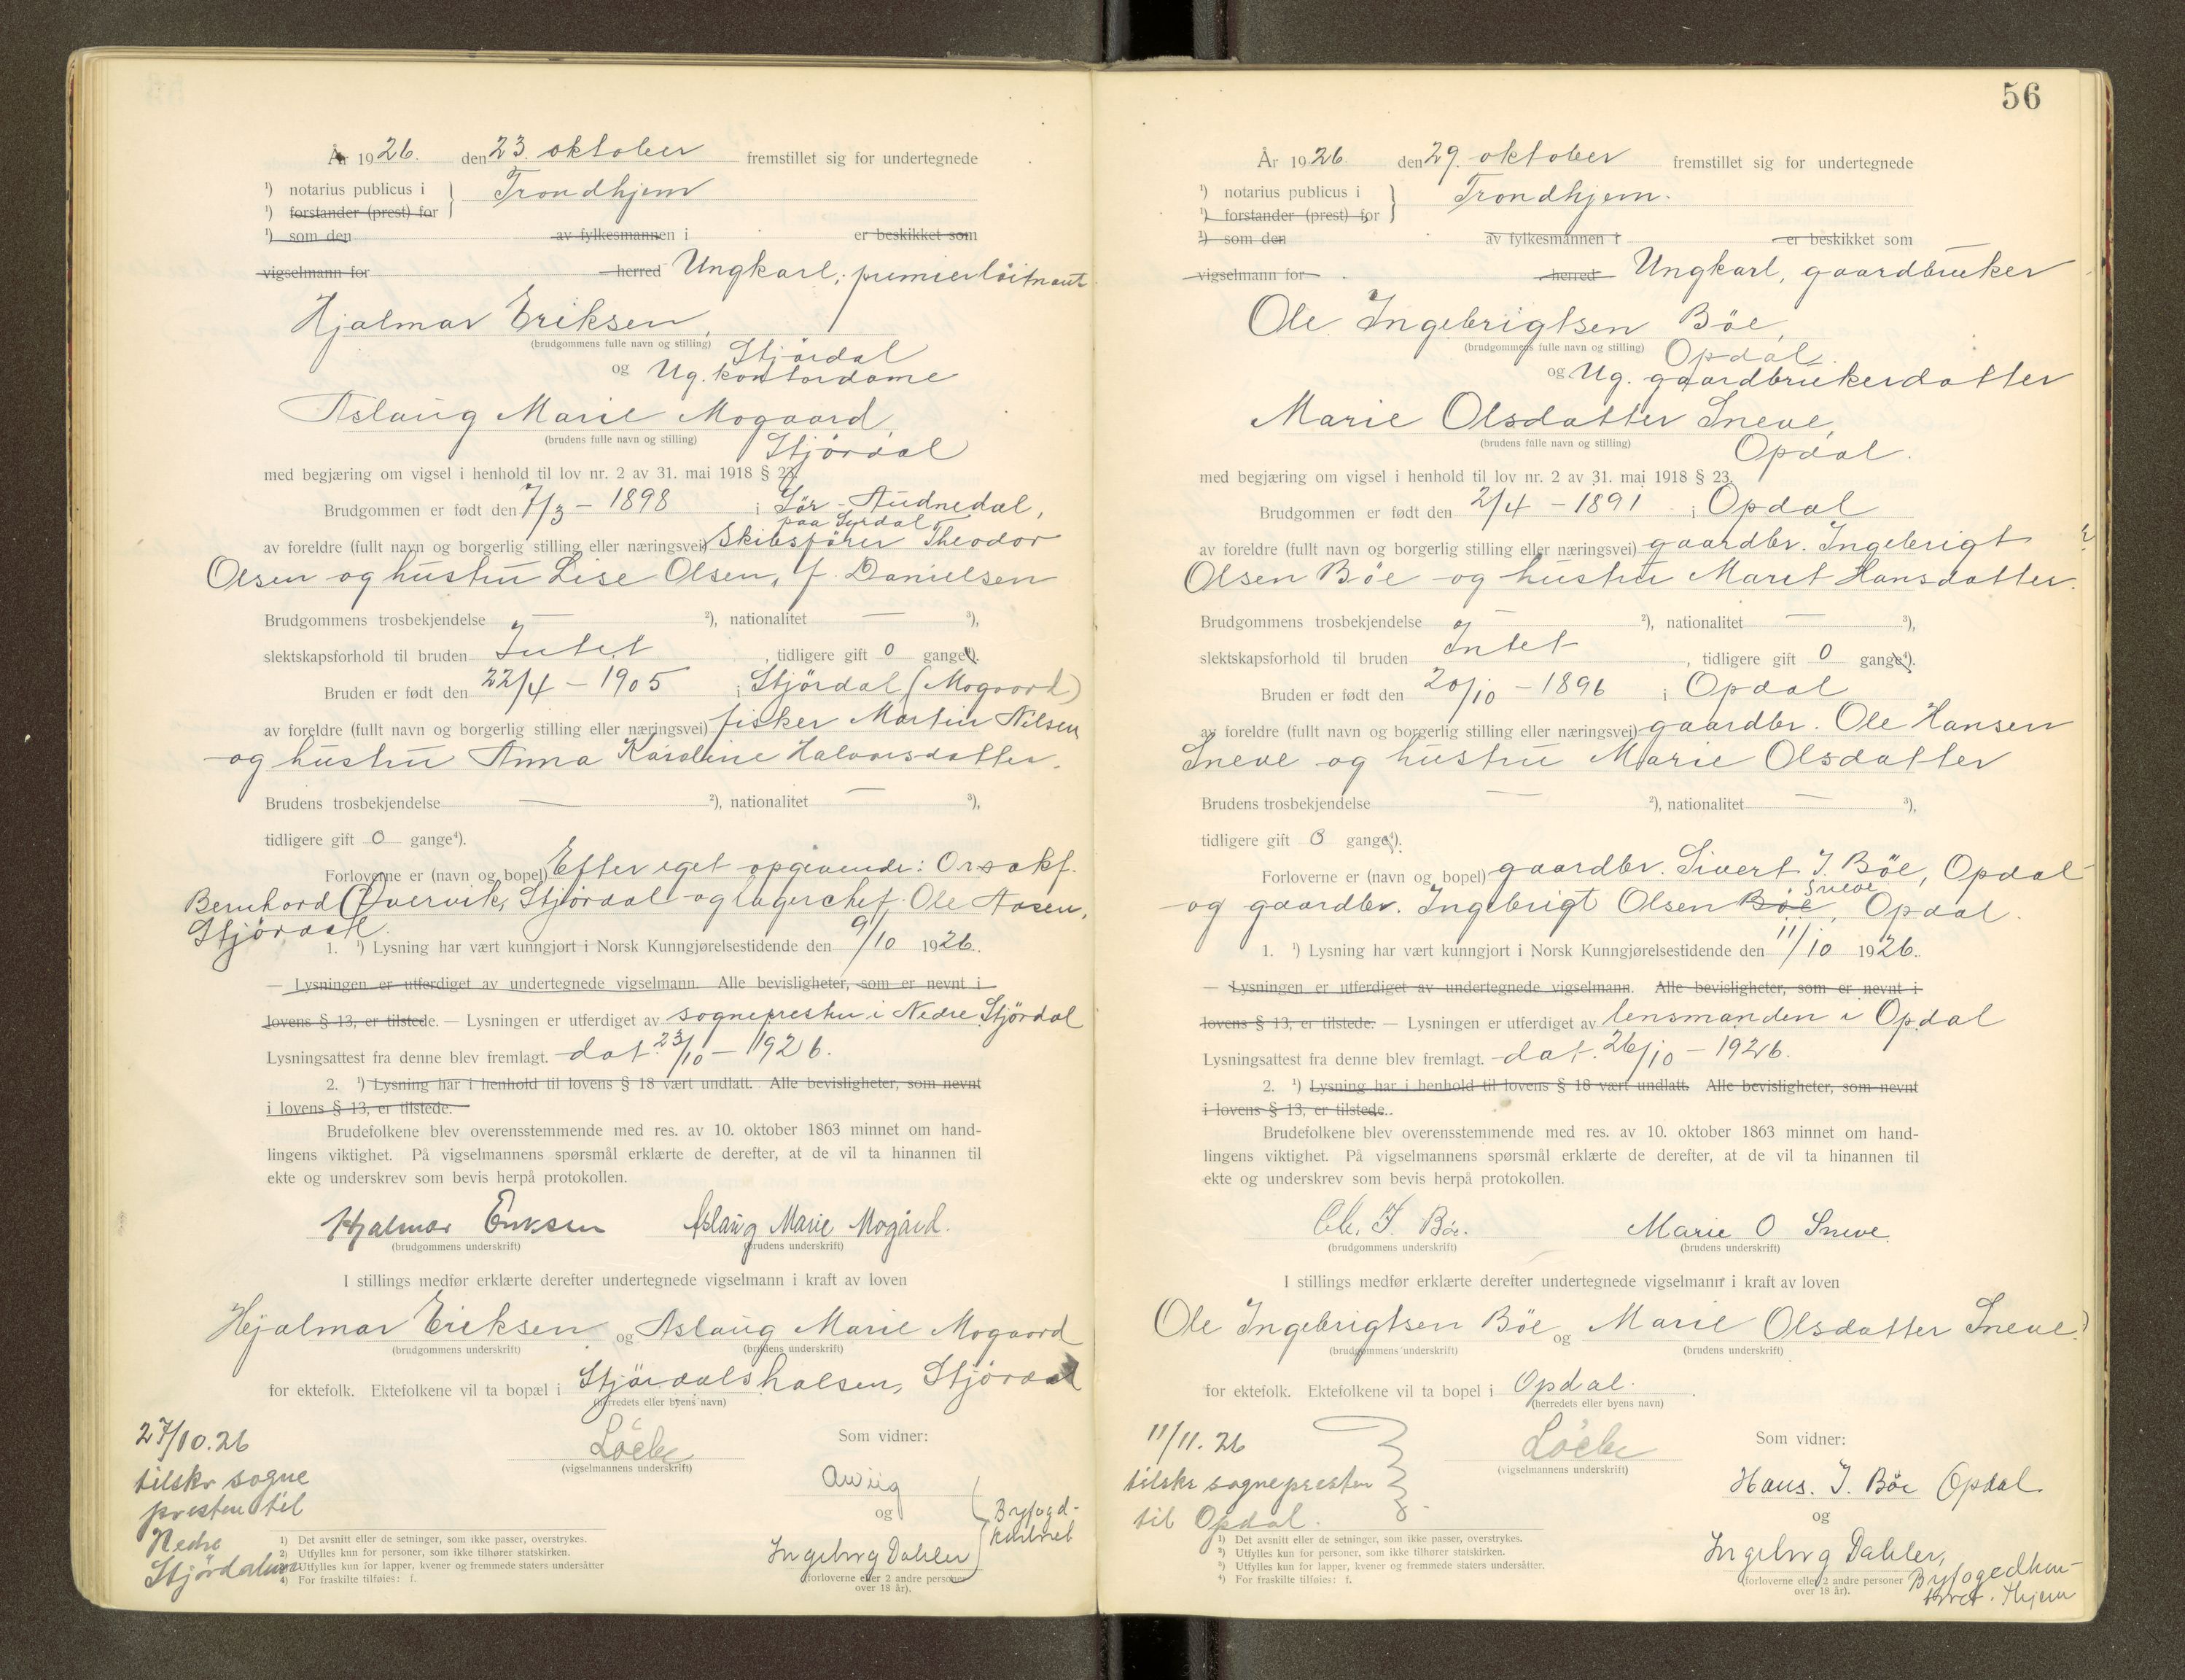 År 1926. den 23. oktober fremstillet sig for undertegnede
¹) notarius publicus i } Trondhjem
¹) forstander (prest) for
¹) som den av fylkesmannen i er beskikket som
vigselmann for herred Ungkarl, premierløitnant
Hjalmar Eriksen,
(brudgommens fulle navn og stilling) Stjördal
og Ug. kontordame
Aslaug Marie Mogaard,
(brudens fulle navn og stilling) Stjördal
med begjæring om vigsel i henhold til lov nr. 2 av 31. mai 1918 § 23.
Brudgommen er født den 7/3 – 1898 i Sör-Audnedal,
paa Syrdal
av foreldre (fullt navn og borgerlig stilling eller næringsvei) Skibsförer Theodor
Olsen og hustru Lise Olsen, f. Danielsen
Brudgommens trosbekjendelse — ²), nationalitet — ³),
slektskapsforhold til bruden Intet, tidligere gift 0 gange⁴).
Bruden er født den 22/4 – 1905 i Stjördal (Mogaard)
av foreldre (fullt navn og borgerlig stilling eller næringsvei) fisker Martin Nilsen
og hustru Anna Karoline Halvorsdatter.
Brudens trosbekjendelse — ²), nationalitet — ³),
tidligere gift 0 gange⁴).
Forloverne er (navn og bopel) Efter eget opgivende: Orsakf.
Bernhard Qvervik, Stjördal og lagerchef Ole Aasen,
Stjördal.
1. ¹) Lysning har vært kunngjort i Norsk Kunngjørelsestidende den 9/10 1926.
— Lysningen er utferdiget av undertegnede vigselmann. Alle bevisligheter, som er nevnt i
lovens § 13, er tilstede. — Lysningen er utferdiget av sognepresten i Nedre Stjördal
Lysningsattest fra denne blev fremlagt. dat. 23/10 – 1926.
2. ¹) Lysning har i henhold til lovens § 18 vært undlatt. Alle bevisligheter, som nevnt
i lovens § 13, er tilstede.
Brudefolkene blev overensstemmende med res. av 10. oktober 1863 minnet om hand-
lingens viktighet. På vigselmannens spørsmål erklærte de derefter, at de vil ta hinannen til
ekte og underskrev som bevis herpå protokollen.
Hjalmar Eriksen Aslaug Marie Mogård.
(brudgommens underskrift) (brudens underskrift)
I stillings medfør erklærte derefter undertegnede vigselmann i kraft av loven
Hjalmar Eriksen og Aslaug Marie Mogaard
(brudgommens underskrift) (brudens underskrift)
for ektefolk. Ektefolkene vil ta bopæl i Stjördalshalsen, Stjördal
(herredets eller byens navn)
27/10.26
tilskr sogne
presten til
Nedre
Stjördalen
Löcke
(vigselmannens underskrift)
Som vidner:
og
Ingeborg Dahler
Byfogd-
kontoret
(forloverne eller 2 andre personer
over 18 år).
¹) Det avsnitt eller de setninger, som ikke passer, overstrykes.
²) Utfylles kun for personer, som ikke tilhører statskirken.
³) Utfylles kun for lapper, kvener og fremmede staters undersåtter
⁴) For fraskilte tilføies: f.
56
År 1926 den 29. oktober fremstillet sig for undertegnede
¹) notarius publicus i } Trondhjem.
¹) forstander (prest) for
¹) som den av fylkesmannen i er beskikket som
vigselmann for herred Ungkarl, gaardbruker
Ole Ingebrigtsen Böe,
(brudgommens fulle navn og stilling) Opdal.
og Ug. gaardbrukerdatter
Marie Olsdatter Sneve,
(brudens fulle navn og stilling) Opdal.
med begjæring om vigsel i henhold til lov nr. 2 av 31. mai 1918 § 23.
Brudgommen er født den 2/4 – 1891 i Opdal
av foreldre (fullt navn og borgerlig stilling eller næringsvei) gaardbr. Ingebrigt
Olsen Böe og hustru Marit Hansdatter.
Brudgommens trosbekjendelse — ²), nationalitet — ³),
slektskapsforhold til bruden Intet, tidligere gift 0 gange⁴).
Bruden er født den 20/10 – 1896 i Opdal
av foreldre (fullt navn og borgerlig stilling eller næringsvei) gaardbr. Ole Hansen
Sneve og hustru Marie Olsdatter
Brudens trosbekjendelse — ²), nationalitet — ³),
tidligere gift 0 gange⁴).
Forloverne er (navn og bopel) gaardbr. Sivert I. Böe, Opdal
og gaardbr. Ingebrigt Olsen Böe Sneve, Opdal.
1. ¹) Lysning har vært kunngjort i Norsk Kunngjørelsestidende den 11/10 1926.
— Lysningen er utferdiget av undertegnede vigselmann. Alle bevisligheter, som er nevnt i
lovens § 13, er tilstede. — Lysningen er utferdiget av lensmanden i Opdal
Lysningsattest fra denne blev fremlagt. dat. 26/10 – 1926.
2. ¹) Lysning har i henhold til lovens § 18 vært undlatt. Alle bevisligheter, som nevnt
i lovens § 13, er tilstede.
Brudefolkene blev overensstemmende med res. av 10. oktober 1863 minnet om hand-
lingens viktighet. På vigselmannens spørsmål erklærte de derefter, at de vil ta hinannen til
ekte og underskrev som bevis herpå protokollen.
Ole. I. Böe. Marie O Sneve.
(brudgommens underskrift) (brudens underskrift)
I stillings medfør erklærte derefter undertegnede vigselmann i kraft av loven
Ole Ingebrigtsen Böe og Marie Olsdatter Sneve.
(brudgommens underskrift) (brudens underskrift)
for ektefolk. Ektefolkene vil ta bopel i Opdal.
(herredets eller byens navn)
11/11. 26
tilskr sognepresten
til Opdal.
Löcke
(vigselmannens underskrift)
Som vidner:
Hans. I. Böe Opdal
og
Ingeborg Dahler,
Byfogedkon-
toret. Thjem
(forloverne eller 2 andre personer
over 18 år).
¹) Det avsnitt eller de setninger, som ikke passer, overstrykes.
²) Utfylles kun for personer, som ikke tilhører statskirken.
³) Utfylles kun for lapper, kvener og fremmede staters undersåtter.
⁴) For fraskilte tilføies: f.